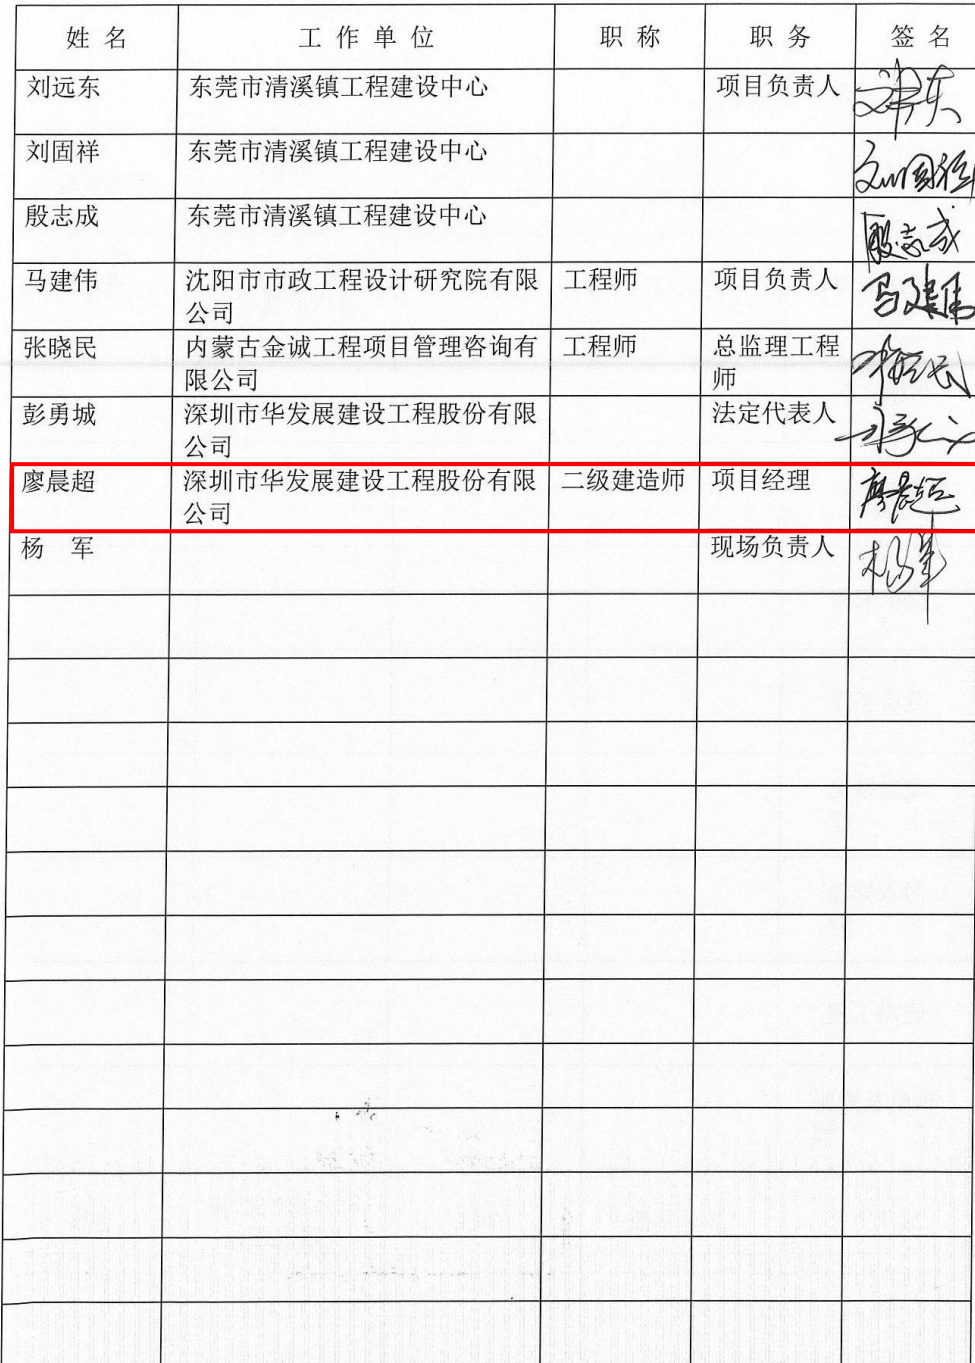 姓 名 工 作 单 位 职 称 职 务 签 名
刘远东 东莞市清溪镇工程建设中心 项目负责人
刘固祥 东莞市清溪镇工程建设中心 刘固祥
殷志成 东莞市清溪镇工程建设中心 殷志成
马建伟 沈阳市市政工程设计研究院有限 工程师 项目负责人 马建伟
公司
张晓民 内蒙古金诚工程项目管理咨询有 工程师 总监理工程
限公司 师
彭勇城 深圳市华发展建设工程股份有限 法定代表人
公司
廖晨超 深圳市华发展建设工程股份有限 二级建造师 项目经理 廖晨超
公司
杨 军 现场负责人 杨军